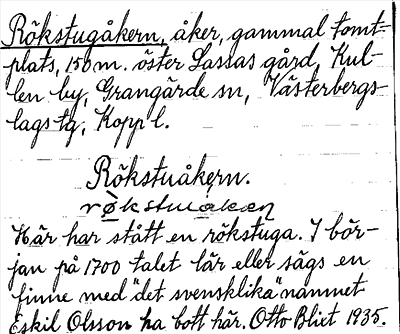 Rökstugåkern, åker, gammal tomt-
plats, 150 m. öster Lassas gård, Kul-
len by, Grangärde sn, Västerbergs-
lags tg, Kopp l.
Rökstuåkern.
rökstuakən
Här har stått en rökstuga. I bör-
jan på 1700 talet lär eller sägs en
finne med "det svensklika" namnet
Eskil Olsson ha bott här. Otto Blixt 1935.